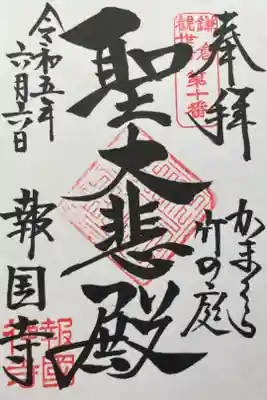 奉拝
鎌倉
観世音
第十番
かまくら
竹の庭
聖大悲殿
令和五年
六月六日
報国寺
報國